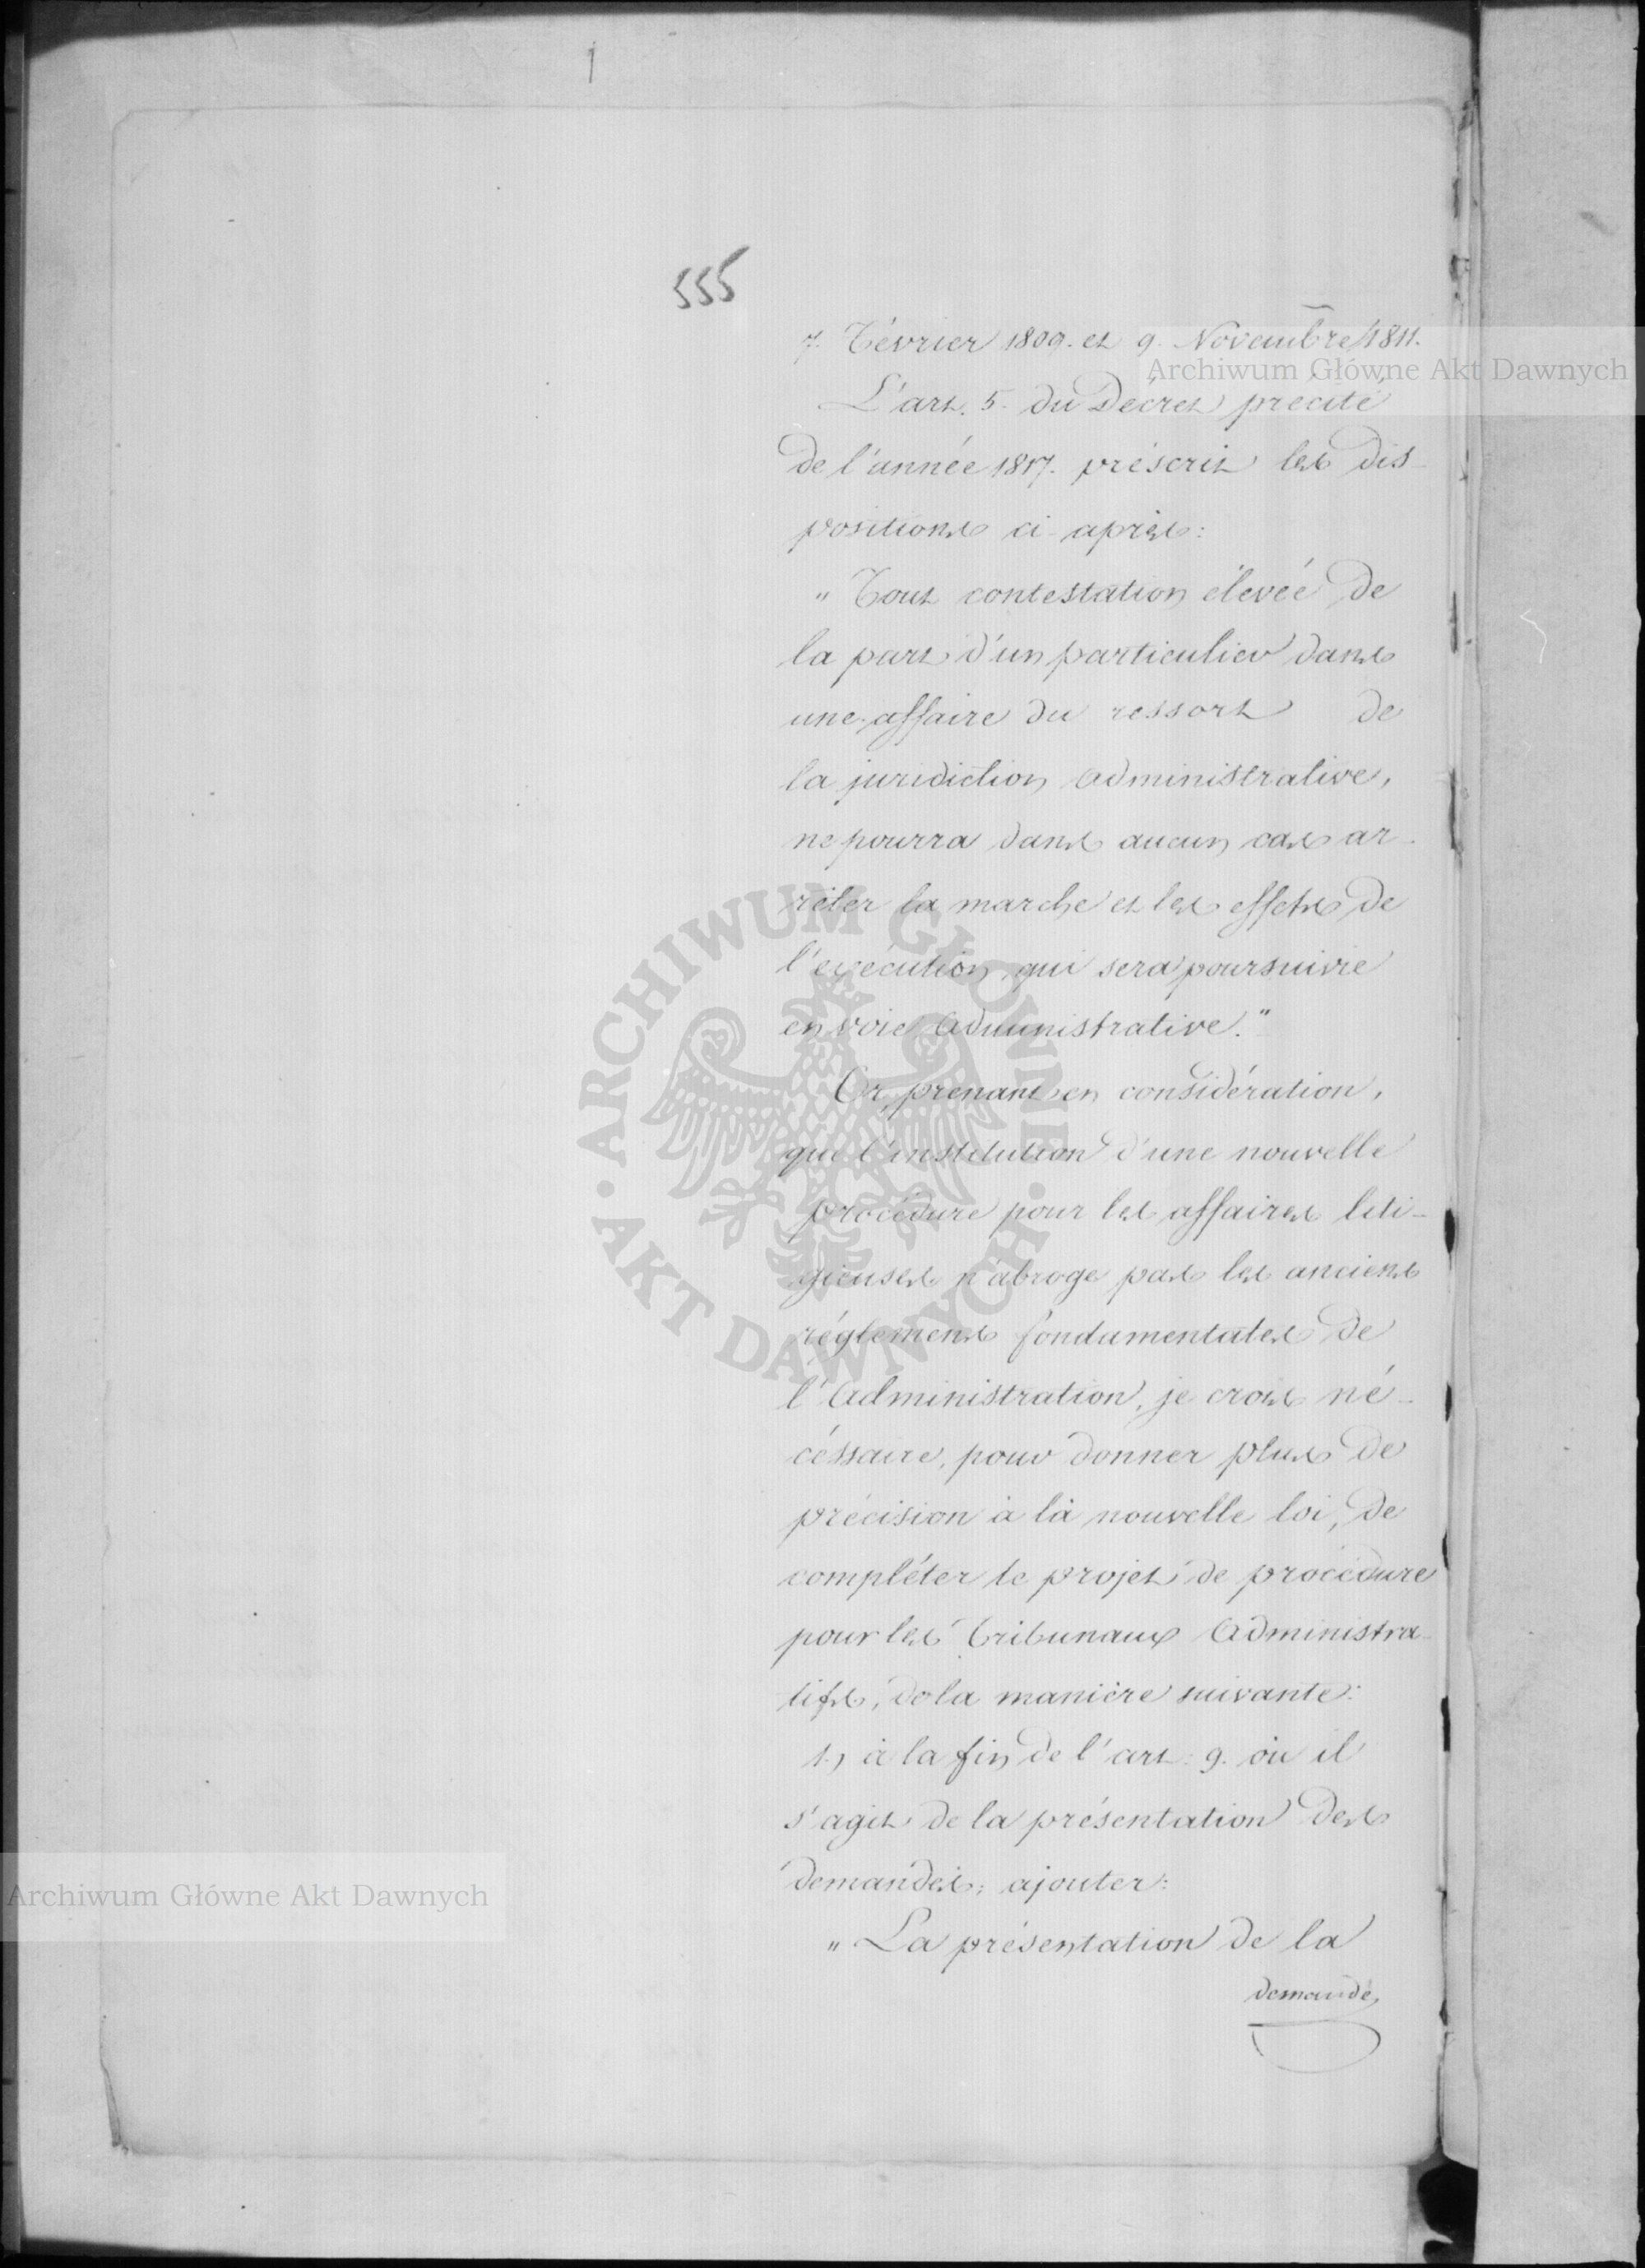 555
7. Février 1809. et 9. Novembre 1811.
L'art. 5. du Décret précité
de l'année 1817. préscrit les dis-
positions ci-après:
"Tout contestation élevée de
la part d'un particulier dans
une affaire du ressort de
la juridiction administrative,
ne pourra dans aucun cas ar-
rêter la marche et les effets de
l'exécution qui sera poursuivie
en voie administrative."
Or, prenant en considération,
que l'institution d'une nouvelle
procédure pour les affaires liti-
gieuses n'abroge pas les anciens
réglemens fondamentales de
l'Administration, je crois né-
céssaire, pour donner plus de
précision à la nouvelle loi, de
compléter le projet de procédure
pour les Tribunaux Administra-
tifs, de la manière suivante:
1.) à la fin de l'art: 9. où il
s'agit de la présentation des
demandes; ajouter:
"La présentation de la
demande,
Archiwum Główne Akt Dawnych
Archiwum Główne Akt Dawnych
ARCHIWUM GŁÓWNE AKT DAWNYCH